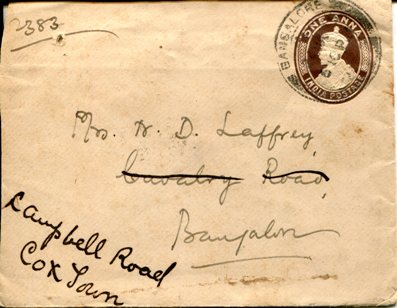 2383
BANGALORE
ONE ANNA
INDIA POSTAGE
Mrs. D. Laffrey,
Cavalry Road,
Bangalore
Campbell Road
Cox Town